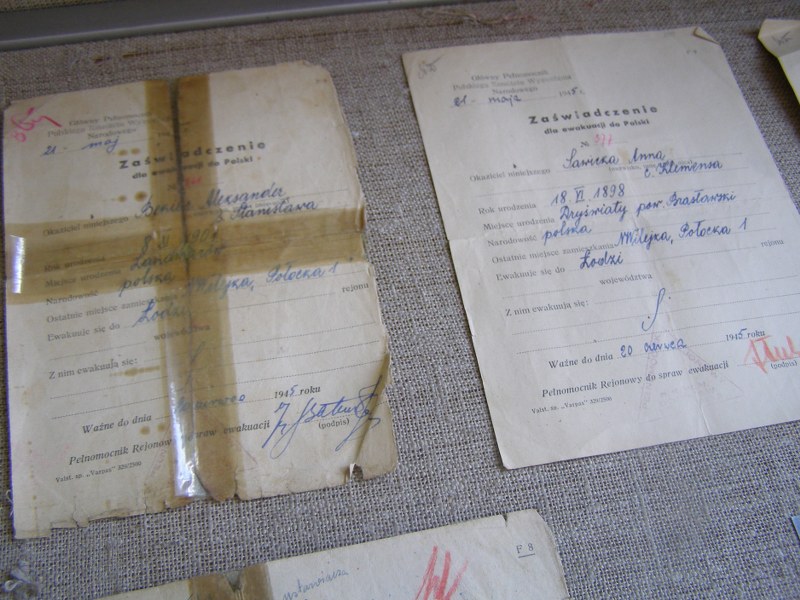 Główny Pełnomocnik
21 - maj
Zaświadczenie
dla ewakuacji do Polski
№
Okaziciel niniejszego Aleksander
s. Stanisława
Rok urodzenia 8
Miejsce urodzenia
Narodowość polska
Ostatnie miejsce zamieszkania N Wilejka, Połocka 1
rejonu
Ewakuuje się do Łodzi
województwa
Z nim ewakuują się:
Ważne do dnia czerwca 1945 roku
Pełnomocnik Rejonowy do spraw ewakuacji
(podpis)
Valst. sp. „Varpas" 329/2906
Główny Pełnomocnik
Polskiego Komitetu Wyzwolenia
Narodowego
21 - maja 1945 r.
Zaświadczenie
dla ewakuacji do Polski
№
Okaziciel niniejszego Sawicka Anna
c. Klemensa
Rok urodzenia 18. VI 1898
Miejsce urodzenia Dryświaty pow. Brasławski
Narodowość polska
Ostatnie miejsce zamieszkania N Wilejka, Połocka 1
rejonu
Ewakuuje się do Łodzi
województwa
Z nim ewakuują się:
Ważne do dnia 20 czerwca 1945 roku
Pełnomocnik Rejonowy do spraw ewakuacji
(podpis)
Valst. sp. „Varpas" 329/2906
F 8